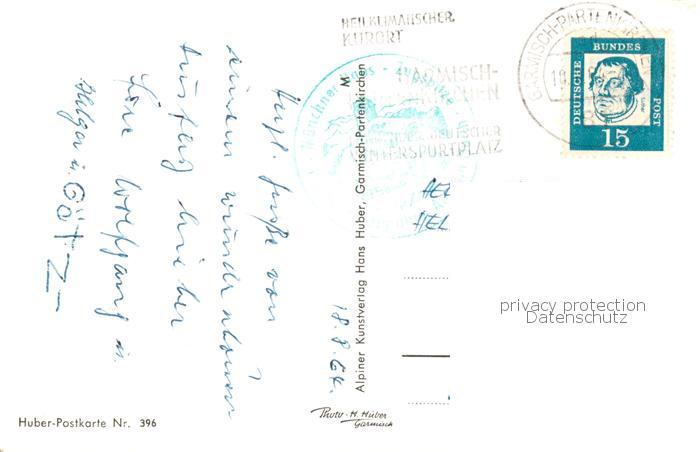 HEILKLIMATISCHER
KURORT
GARMISCH-
KIRCHEN
DEUTSCHER
WINTERSPORTPLATZ
GARMISCH-PARTENKIRCHEN
DEUTSCHE BUNDES POST
15
Münchner Haus - Zugspitze
18.8.64.
Herzl. Grüße von
einem wunderschönen
Ausflug
Wolfgang u.
Helga u. GÖTZ
M
Alpiner Kunstverlag Hans Huber, Garmisch-Partenkirchen
HEL
privacy protection
Datenschutz
Photo-H. Huber
Garmisch
Huber-Postkarte Nr. 396